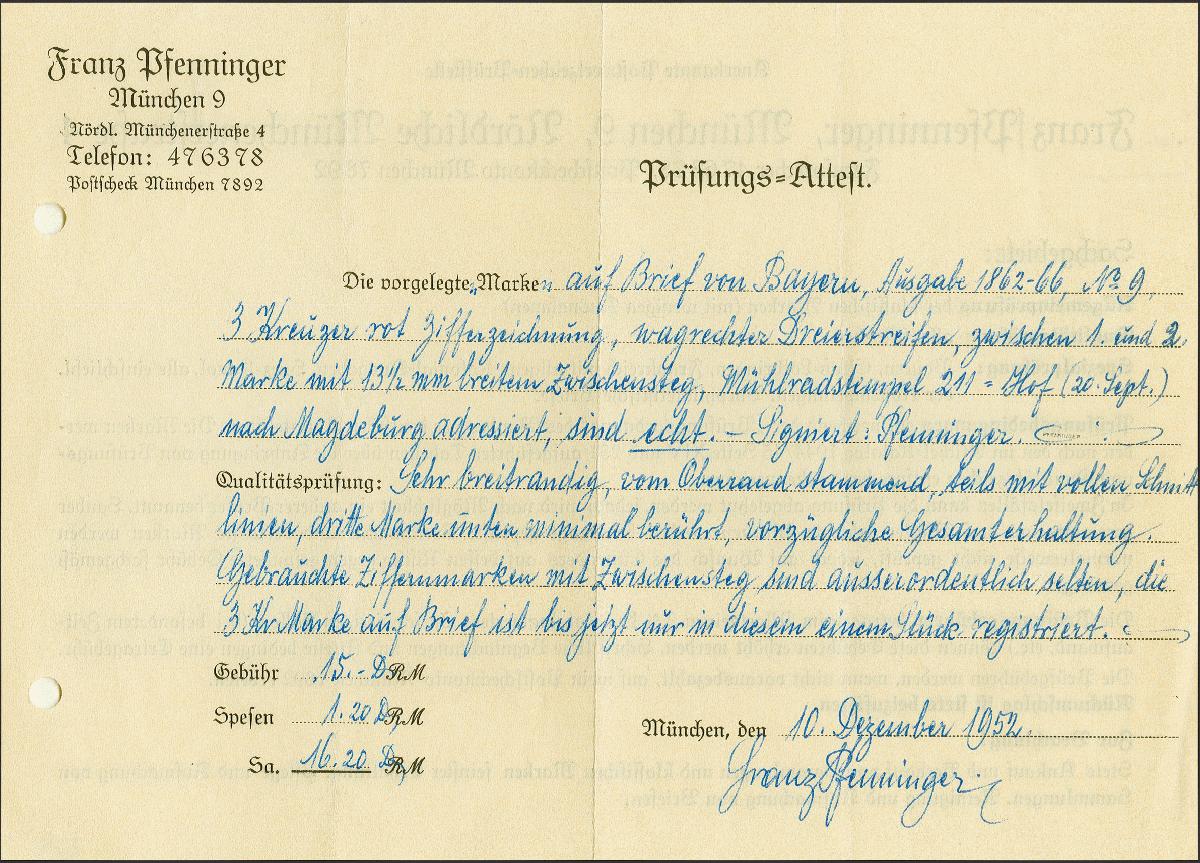 Franz Pfenninger
München 9
Nördl. Münchenerstraße 4
Telefon: 476378
Postscheck München 7892
Prüfungs=Attest.
Die vorgelegten Marken auf Brief von Bayern, Ausgabe 1862-66, No 9,
3 Kreuzer rot Zifferzeichnung, wagrechter Dreierstreifen, zwischen 1. und 2.
Marke mit 13½ mm breitem Zwischensteg, Mühlradstempel 211 = Hof (20. Sept.)
nach Magdeburg adressiert, sind echt. – Signiert: Pfenninger.
Qualitätsprüfung: Sehr breitrandig, vom Oberrand stammend, teils mit vollen Schnitt
linien, dritte Marke unten minimal berührt, vorzügliche Gesamterhaltung.
Gebrauchte Ziffernmarken mit Zwischensteg sind ausserordentlich selten, die
3 Kr Marke auf Brief ist bis jetzt nur in diesem einem Stück registriert.
Gebühr 15.- DM
Spesen 1.20 DM
Sa. 16.20 DM
München, den 10. Dezember 1952
Franz Pfenninger